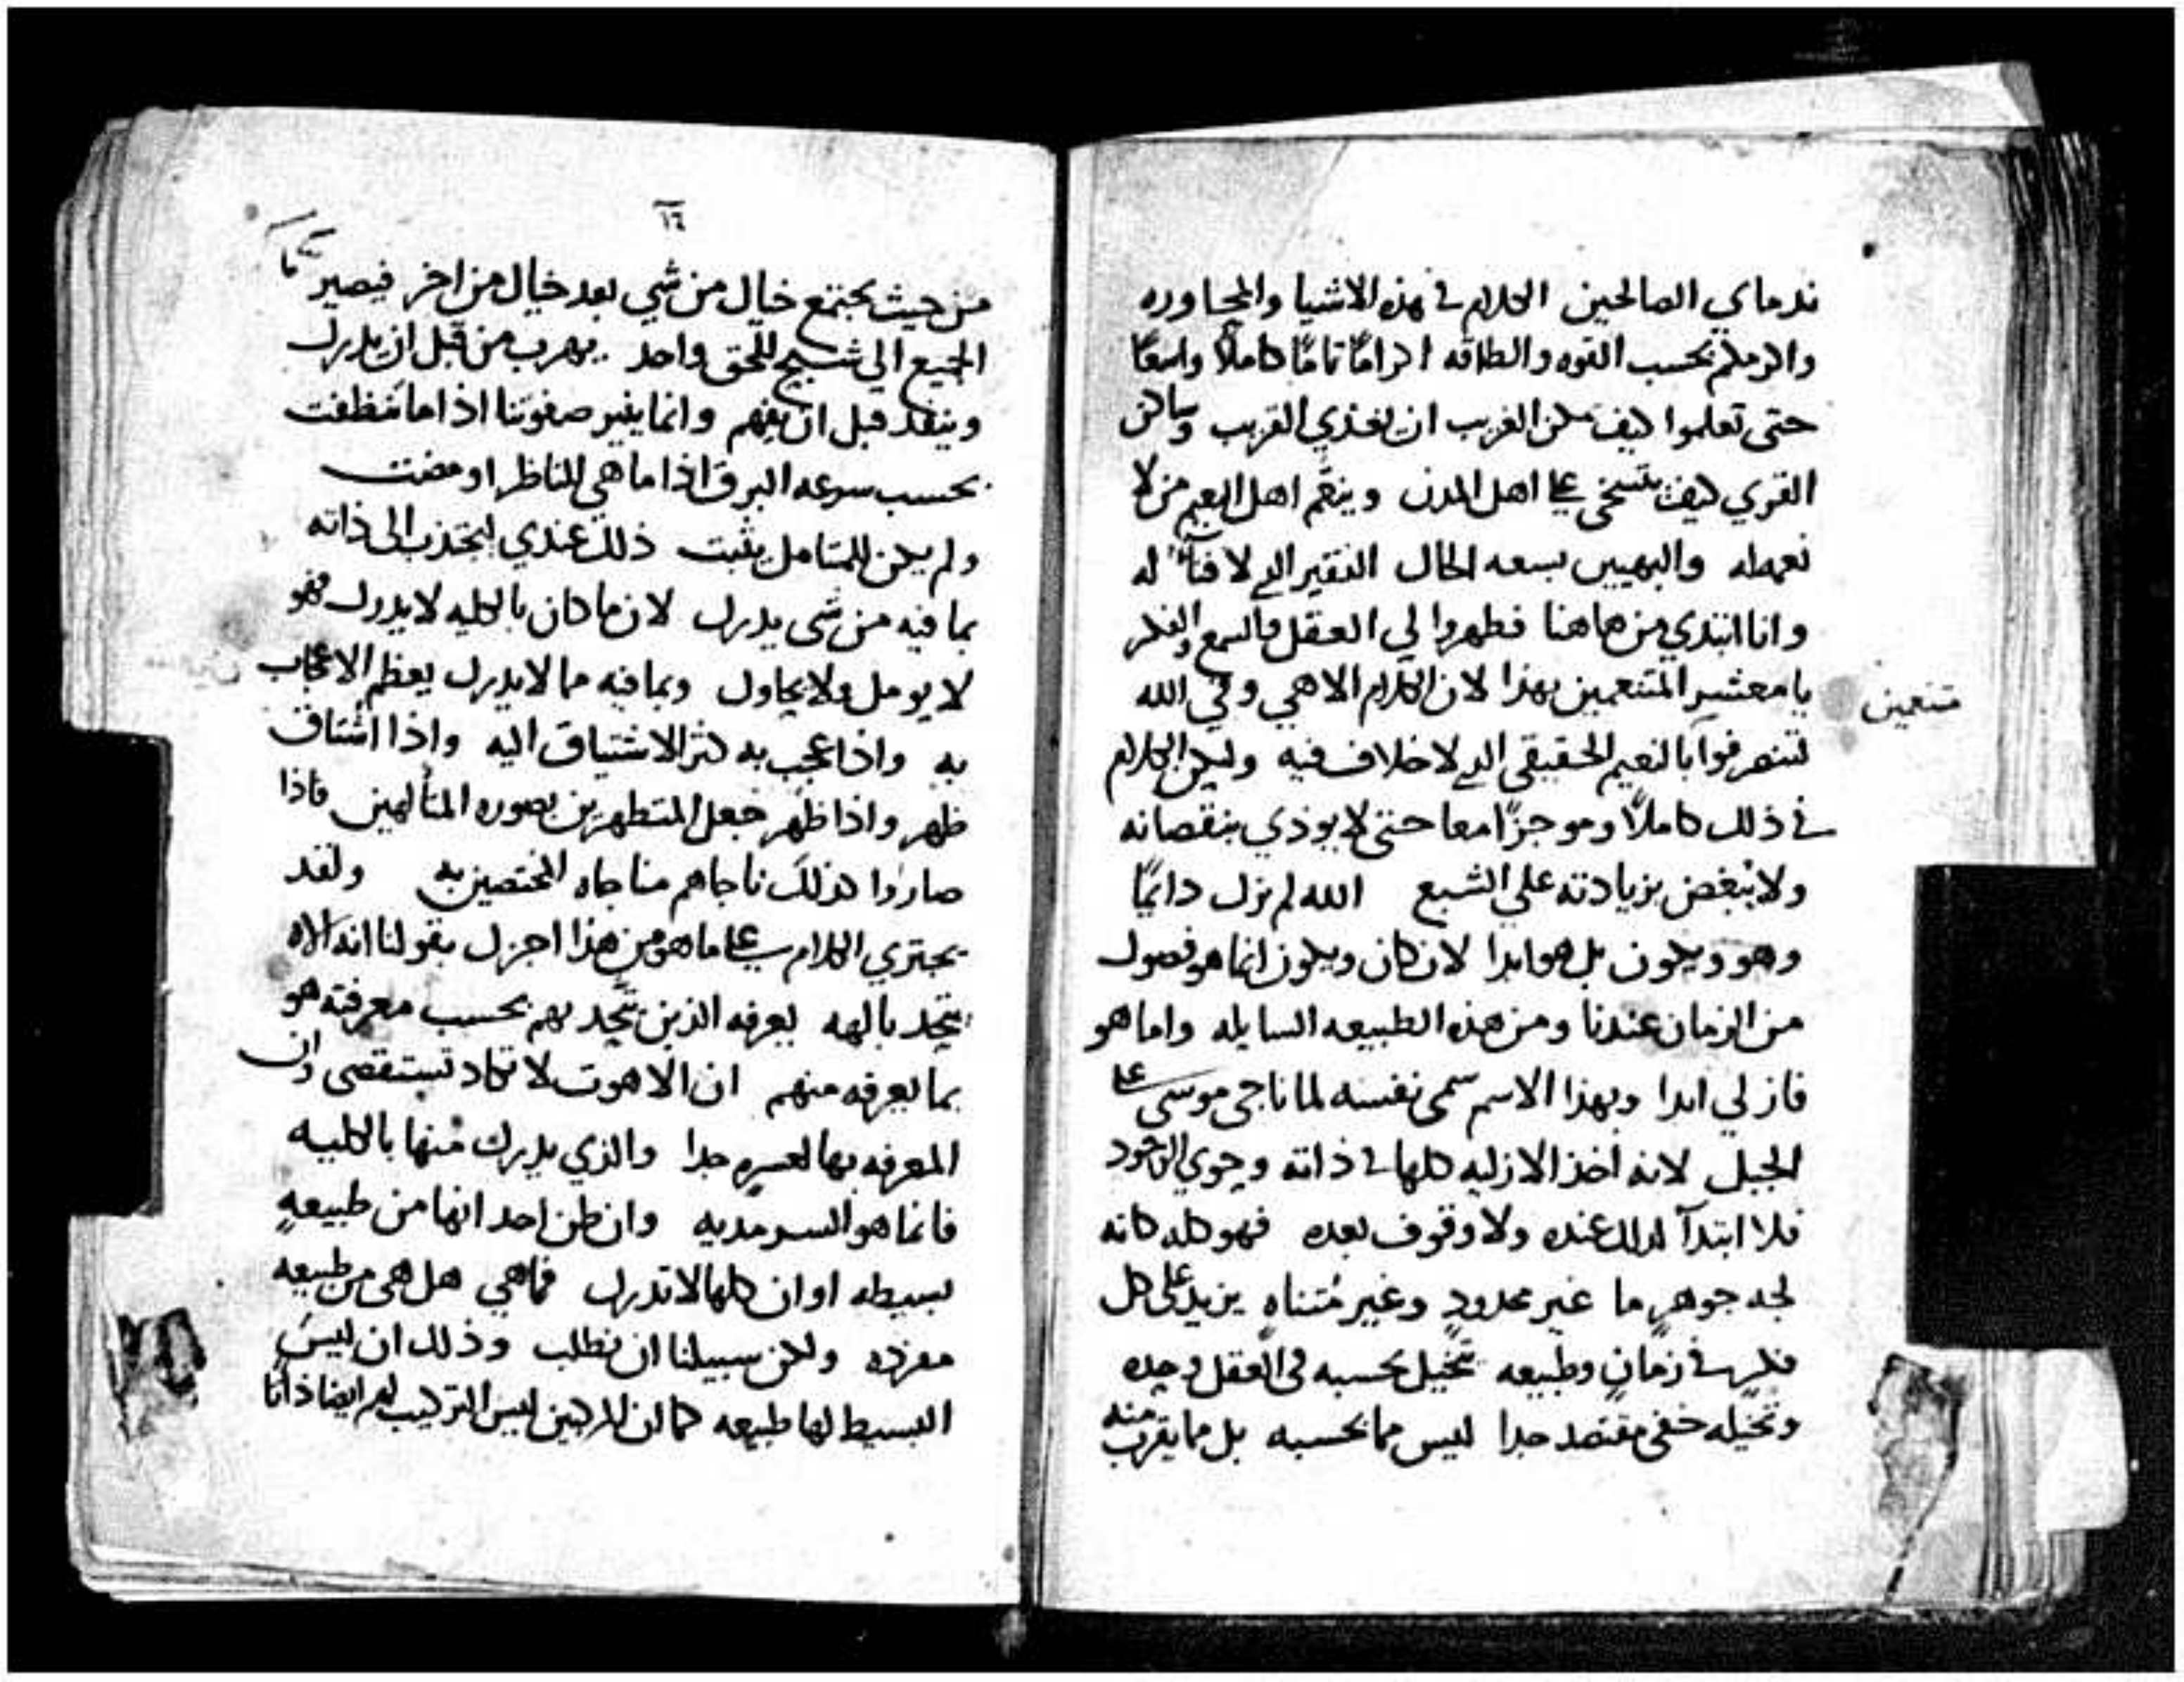 ندماي الصالحين الكلام في هذه الاشيا والمجاوره
بحسب القوه والطاقه اكراما تاما كاملا واسعا
حتى تعلموا كيف يمكن الغريب ان يغذي القريب وساكن
القري كيف يتسخى على اهل المدن وينعم اهل النعيم من لا
نعمه له بسعه الحال الفقير الدي لا فناء له
وانا ابتدي من هاهنا فطهروا لي العقل والسمع والفكر
يا معشر المتنعمين بهذا لان الكلام الاهي وفي الله
متنعمين
لتنصرفوا بالنعيم الحقيقي الدي لا خلاف فيه وليكن الكلام
في ذلك كاملًا وموجزًا معا حتى لا يوذي بنقصانه
ولا يُبغض بزيادته علي الشبع الله لم يزل دايمًا
وهو ويكون بل هو ابدا لان كان ويكون انما هو فصول
من الزمان عندنا ومن هذه الطبيعه السايله واما هو
فازلي ابدا وبهذا الاسم سمى نفسه لما ناجى موسى على
الجبل لانه اخذ الازليه كلها في ذاته وحوي الوجود
فلا ابتدآ لدلك عنده ولا وقوف بعده فهو كله كانه
لجه جوهرٍ ما غير محدودٍ وغير مُتناهٍ يزيد على كل
فكرٍ في زمانٍ وطبيعه تخيل بحسبه في العقل وحده
وتخيله خفي مقتصد جدا ليس مما بحسبه بل مما يقرب منه
١٤
من حيث يجتمع خيال من شي بعد خيال من اخر فيصير
الجميع الي شبح للحق واحد يهرب من قبل ان يدرك
وينفد قبل ان يفهم وانما ينير صفوتنا اذا ما نظفت
بحسب سرعه البرق اذا ما هي للناظر اومضت
ولم يكن للمتامل يثبت ذلك عندي ليجذب الى ذاته
بما فيه من شى يدرك لان ما كان بالكليه لا يدرك فهو
لا يومل ولا يحاول وبما فيه مما لا يدرك يعظم الاعجاب
به واذا عجب به كثر الاشتياق اليه واذا اشتاق
ظهر واذا ظهر جعل المتطهرين بصوره المتألهين فاذا
صاروا كذلك ناجاهم مناجاه المختصين به ولقد
يجتري الكلام على ما هو من هذا اجزل بقولنا انه الاه
يتحد بالهه يعرفه الذين يتحد بهم بحسب معرفته هو
بما يعرفه منهم ان الاهوت لا تكاد تستقصى وان
المعرفه بها لعسره جدا والذي يدرك مُنها بالكليه
فانما هو السرمديه وان ظن احد انها من طبيعهٍ
بسيطه او ان كلها لا تدرك فما هي هل هي من طبيعه
مفرده ولكن سبيلنا ان نطلب وذلك ان ليس
البسيط لها طبيعه كما ان للمركبين ليس التركيب لهم ايضا ذاتا